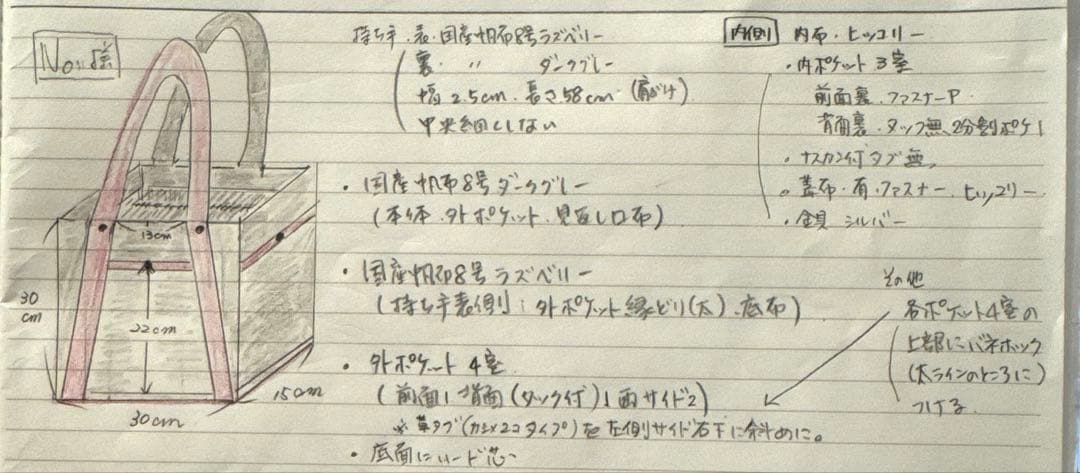 持ち手・表・国産帆布8号ラズベリー
裏・〃 ダークグレー
幅2.5cm・長さ58cm(肩がけ)
中央細くしない
・国産帆布8号ダークグレー
(本体・外ポケット・見返し口布)
・国産帆布8号ラズベリー
(持ち手表側・外ポケット縁どり(太)・底布)
・外ポケット4室
(前面1背面(タック付)1両サイド2)
※革タブ(カシメ2コタイプ)を左側サイド右下に斜めに。
・底面にハード芯
内側 内布・ヒッコリー
・内ポケット3室
前面裏・ファスナーP
背面裏・タック無、2分割ポケ1
・ナスカン付タブ無
・蓋布・有・ファスナー、ヒッコリー
・金具シルバー
その他
各ポケット4室の
上部にバネホック
(太ラインのところに)
つける
13cm
22cm
30cm
30cm
15cm